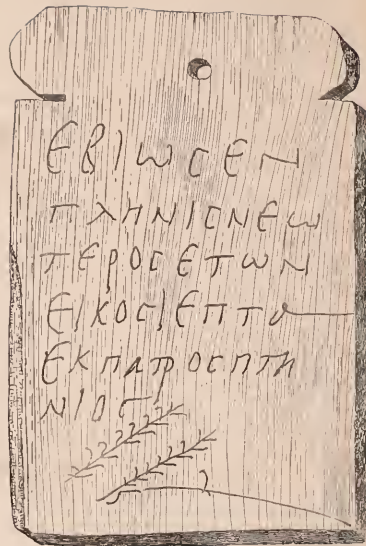 ΕΒΙωϹΕΝ
ΠΛΗΝΙϹΝΕω
ΤΕΡΟϹΕΤωΝ
ΕΙΚΟϹΙΕΠΤΑ
ΕΚΠΑΤΡΟϹΠΛΗ
ΝΙΟϹ